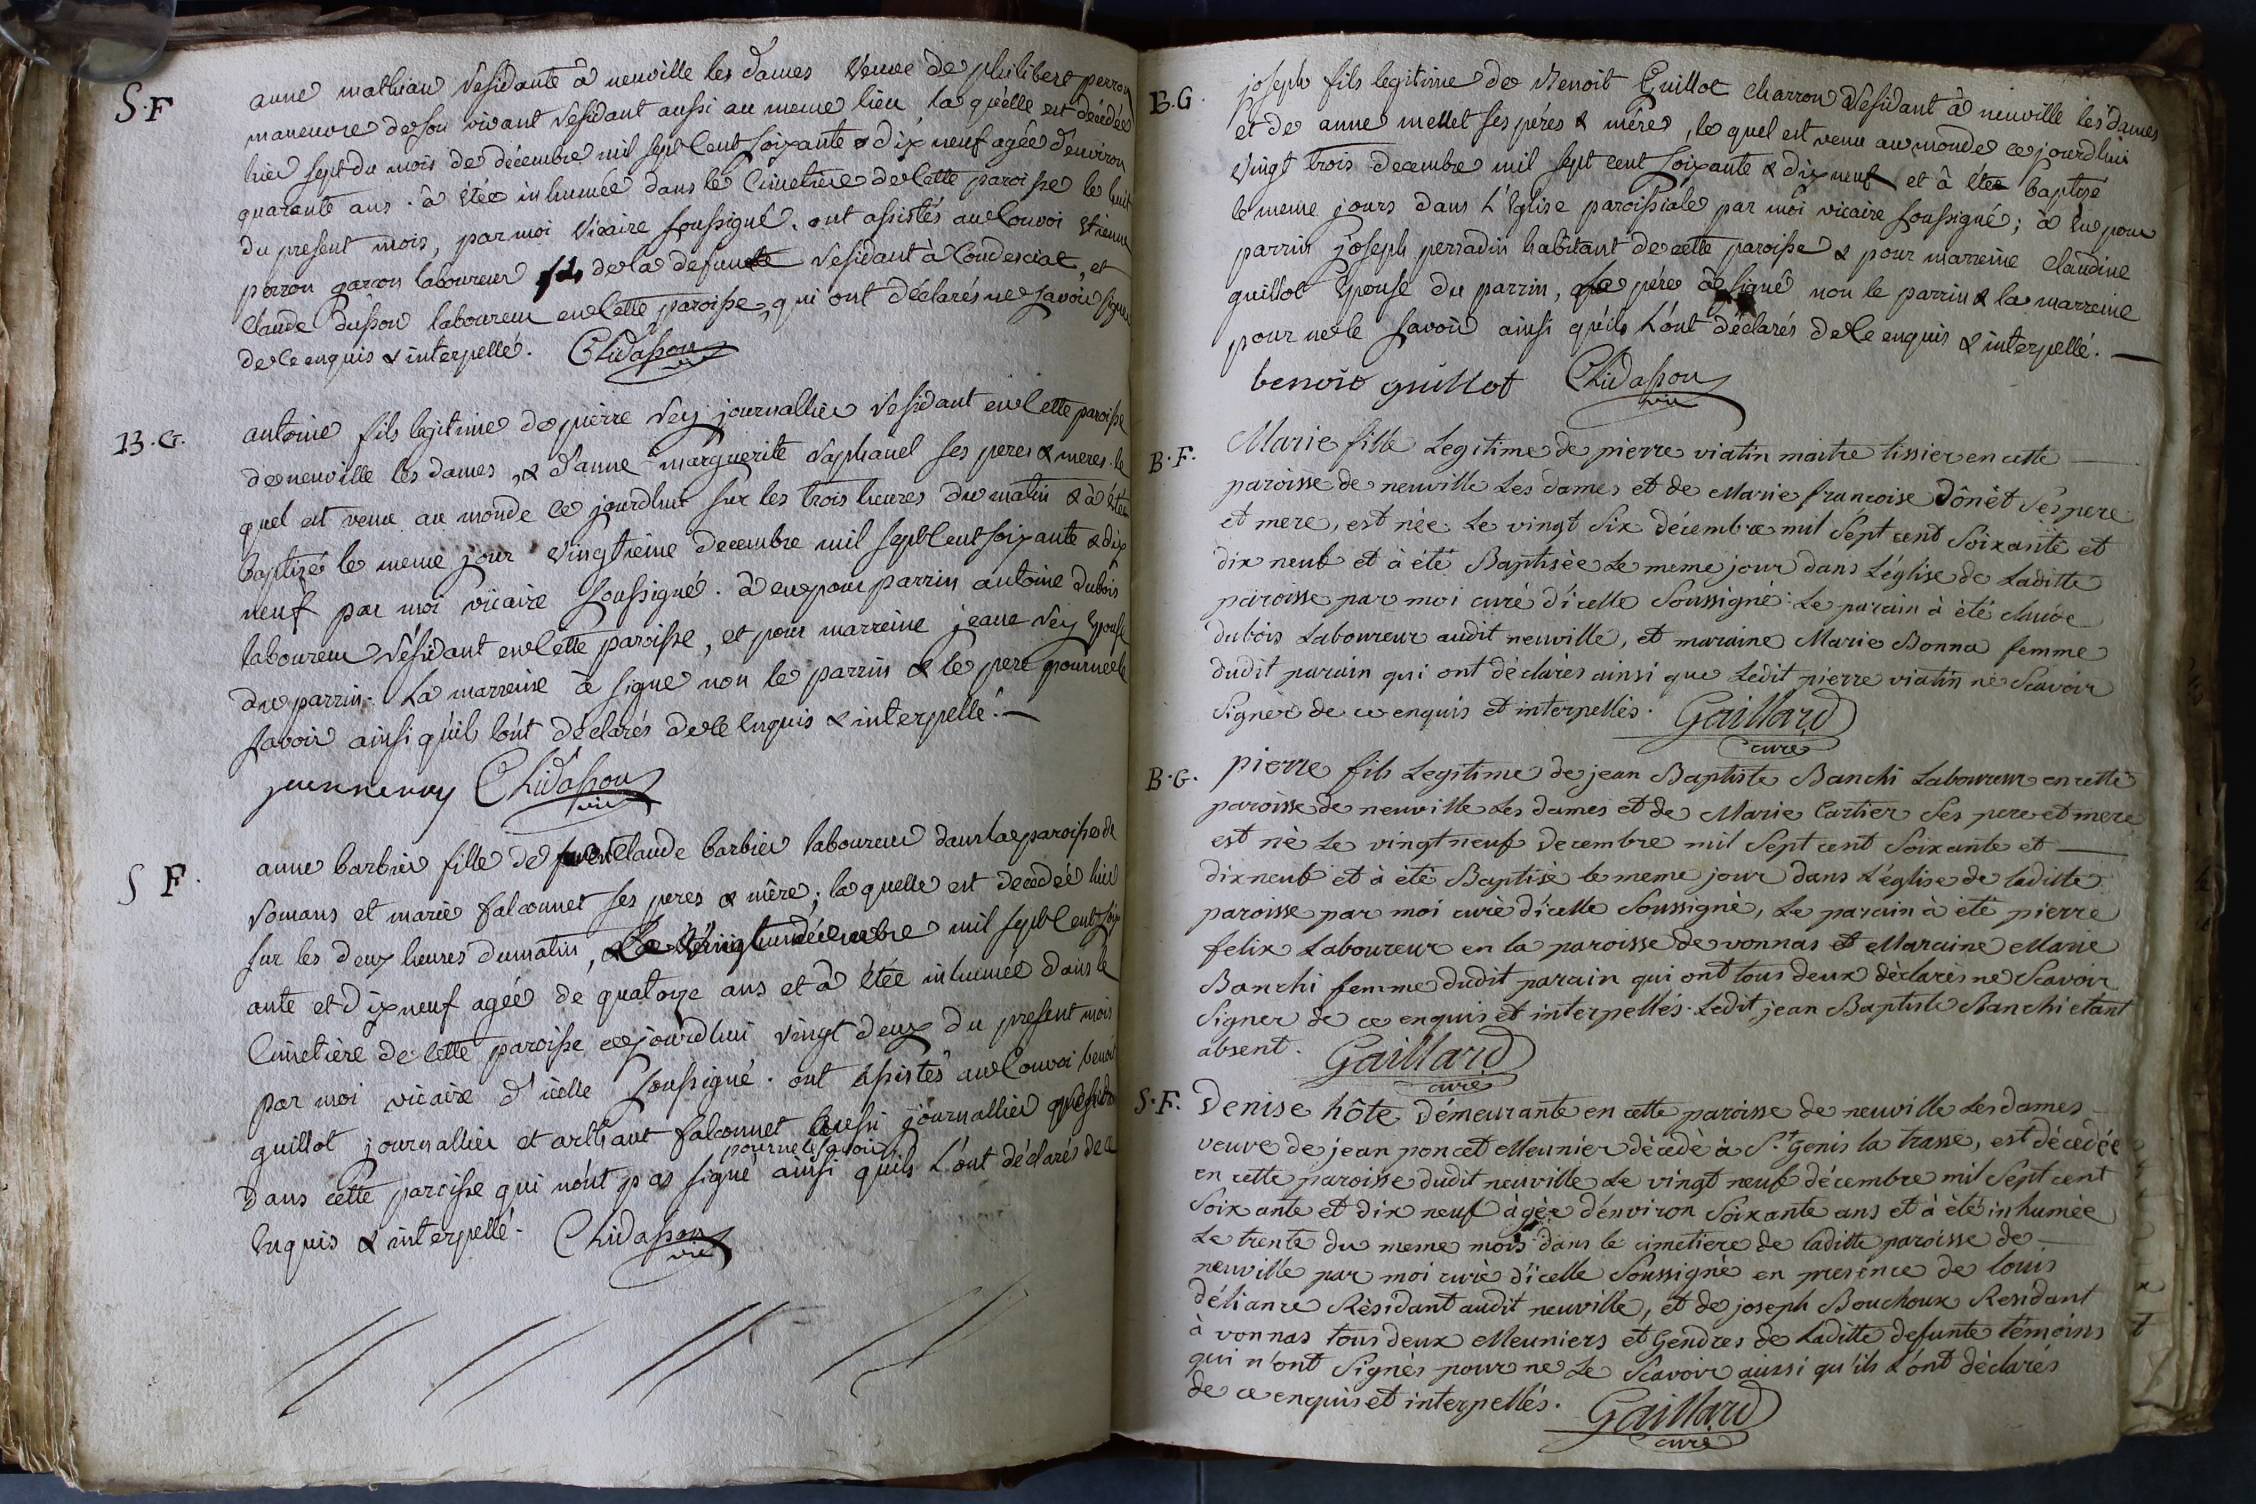 S.F
anne mathieu résidante à neuville les dames veuve de philibert perron
maneuvre de son vivant résidant aussi au meme lieu la quélle est décédée
hier sept du mois de décembre mil sept cent soixante & dix neuf agée d'environ
quarante ans. à étée inhumée dans le cimetière de cette paroisse le huit
du present mois, par moi vicaire soussigné. ont assistés au convoi etienne
perron garcon laboureur fils de la defunte résidant à condesciat, et
claude dusson laboureur en cette paroisse, qui ont déclarés ne savoir signer
de ce enquis & interpellé. Chidasson
vic
B.G.
antoine fils legitime de pierre rey journallier résidant en cette paroisse
de neuville les dames, & d'anne marguerite raphanel ses peres & meres. le
quel est venu au monde ce jourdhui sur les trois heures du matin & à étée
baptizé le meme jour vingtième decembre mil sept cent soixante & dix
neuf par moi vicaire soussigné. à eu pour parrin antoine dubois
laboureur résidant en cette paroisse, et pour marreine jeane rey epouse
du parrin. La marreine à signe non le parrin & le pere pour ne le
savoir ainsi qu'ils l'ont déclarés de ce enquis & interpellé.
Chidasson
vic
S F.
anne barbier fille de claude barbier laboureur dans la paroisse de
romans et marie falconnet ses peres & mère; la quelle est decédée hier
sur les deux heures du matin, le vingt un décembre mil sept cent soix
ante et dix neuf agée de quatorze ans et à étée inhumée dans le
cimetière de cette paroisse ce jourdhui vingt deux du present mois
par moi vicaire d'icelle soussigné. ont assistés au convoi benoit
guillot journallier et falconnet aussi journallier
pour ne le savoir
dans cette paroisse qui nónt pas signé ainsi quils l'ont déclarés de ce
enquis & interpellé. Chidasson
vic
B.G.
joseph fils legitime de Benoit Guillot charron résidant à neuville les dames
et de anne mellet ses péres & mére, le quel est venu au monde ce jourdhui
vingt trois decembre mil sept cent soixante & dix neuf et à étée baptisé
le meme jours dans l'église paroissiale par moi vicaire soussigné; à eu pour
parrin joseph perradin habitant de cette paroisse & pour marreine claudine
guillot epouse du parrin, le père à signé non le parrin & la marreine
pour ne le savoir ainsi quéils l'ont déclarés de ce enquis & interpellé.
benoit guillot Chidasson
vic
B.F.
Marie fille Legitime de pierre viatin maitre tissier en cette
paroisse de neuville Les dames et de Marie françoise Dônèt Ses pere
et mere, est née Le vingt Six décembre mil Sept cent Soixante et
dix neuf et à été Baptisèe Le meme jour dans L'église de Laditte
paroisse par moi curé d'icelle Soussigné: Le parain à été claude
dubois Laboureur audit neuville, et maraine Marie Bonna femme
dudit parain qui ont déclarés ainsi que Ledit pierre viatin ne Scavoir
Signer de ce enquis et interpellés. Gaillard
curé
B.G.
pierre fils Legitime de jean Baptiste Banchi Laboureur en cette
paroisse de neuville Les dames et de Marie Cartier Ses pere et mere
est né Le vingt neuf decembre mil Sept cent Soixante et
dix neuf et à été Baptisé le meme jour dans L'église de laditte
paroisse par moi curé d'icelle Soussigné, Le parain à été pierre
felix Laboureur en la paroisse de vonnas et Maraine Marie
Banchi femme dudit parain qui ont tous deux déclarés ne Scavoir
Signer de ce enquis et interpellés. Ledit jean Baptiste Banchi etant
absent. Gaillard
curé
S.F.
Denise hôte Démeurante en cette paroisse de neuville Les dames
veuve de jean poncet Meunier décédé à St. Genis la trasse, est décedée
en cette paroisse dudit neuville Le vingt neuf décembre mil Sept cent
Soixante et dix neuf àgée d'environ Soixante ans et à été inhumèe
Le trente du meme mois dans le cimetiere de laditte paroisse de
neuville par moi curé d'icelle Soussigné en presénce de louis
déliance Résidant audit neuville, et de joseph Bouchoux Residant
à vonnas tous deux Meuniers et Gendres de Laditte defunte témoins
qui n'ont Signés pour ne Le Scavoir aussi qu'ils L'ont déclarés
de ce enquis et interpellés. Gaillard
curé